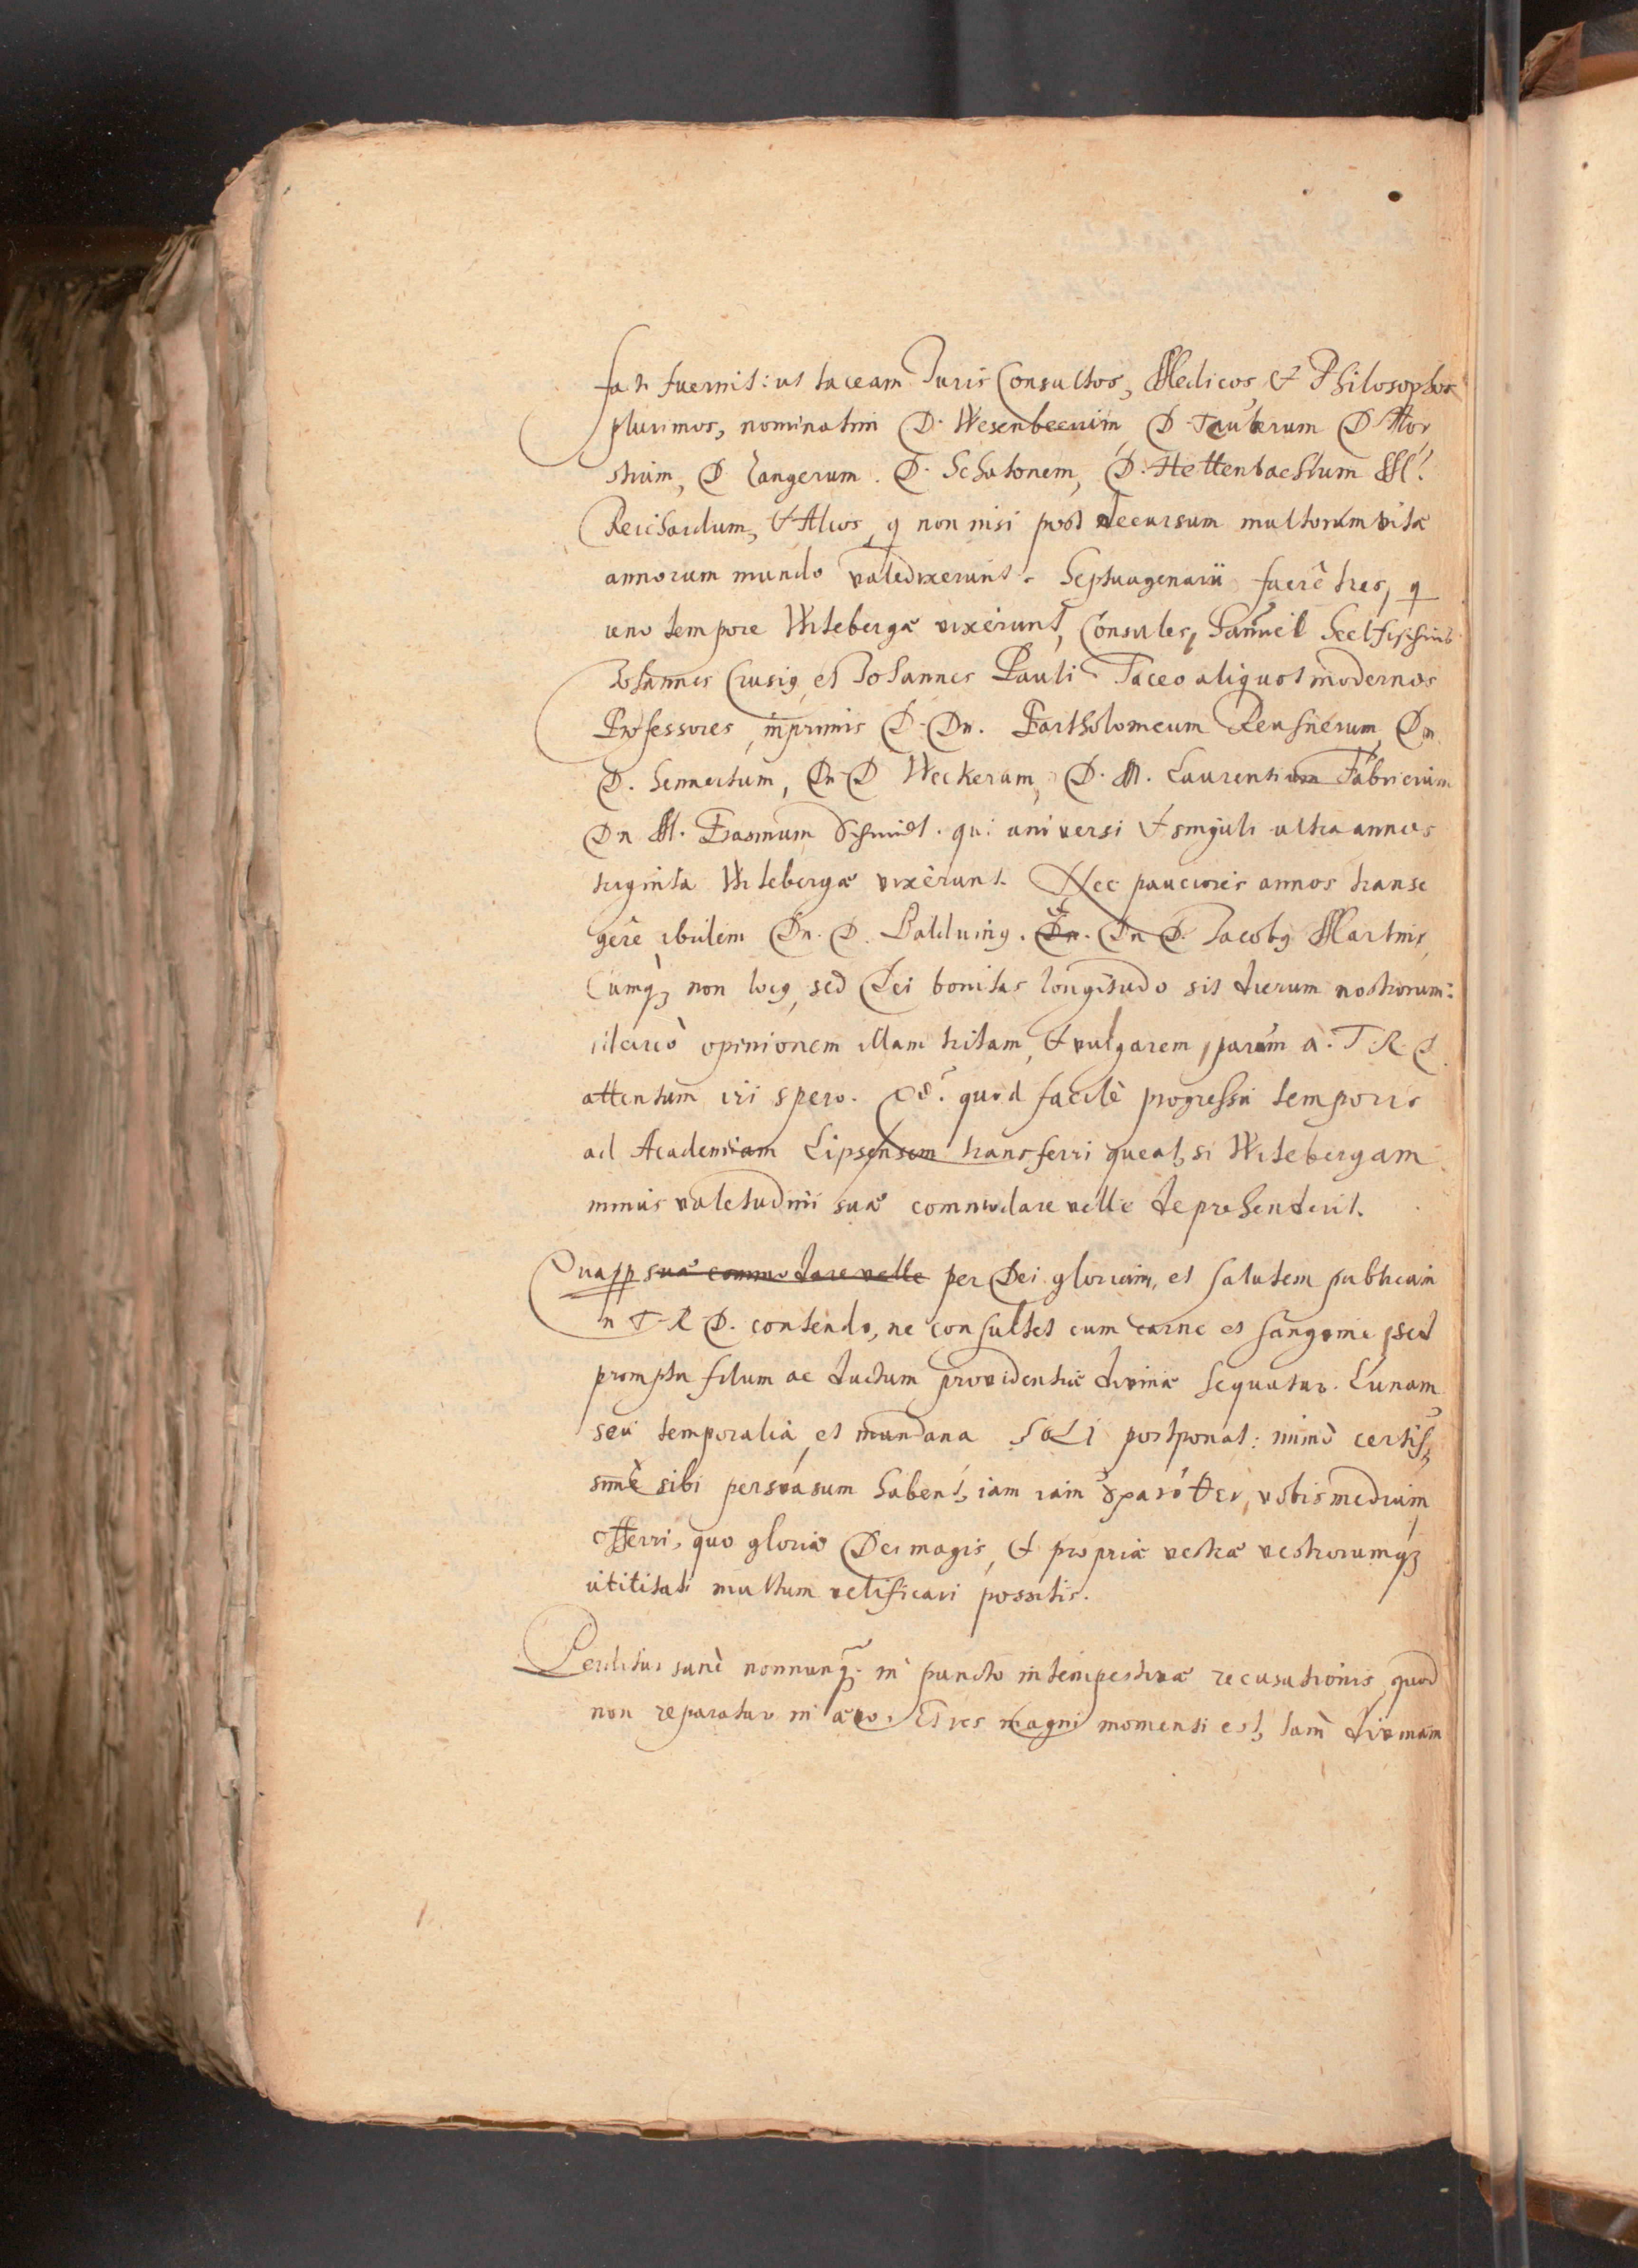 fati fuerint: ut taceam JurisConsultos, Medicos, & Philosophos
plurimos, nominatim D. Wesenbecium, D. Tauberum D. Hor
stium, D. Langerum. D. Schatonem, D. Hettenbachium M.
Reichardum, & Alios, q non nisi post decursum multorum vitæ
annorum mundo valedixerunt. Septuagenarii fuerê tres, q
uno tempore Witebergæ vixerunt, Consules, Samuel
Johannes Crusig, et Johannes Pauli Taceo aliquot modernos
Professores, inprimis D. Dn. Bartholomeum Reusnerum, Dn.
D. Sennertum, Dn. D Weckerum, D. M. Laurentium Fabricium
Dn M. Erasmum Schmidt. qui universi & singuli ultra annos
triginta Witebergæ vixerunt. Nec pauciores annos transe
gêre ibidem Dn. D. Balduing. Dn. Dn D. Jacobg Martini,
Cumq; non locg, sed Dei bonitas longitudo sit dierum nostrorum:
idcircò opinionem illam tritam, & vulgarem, parum à T. R. D.
attentum iri spero. quòd facilè progressu temporis
ad Academiam Lipsensem transferri queat, si Witebergam
minus valetudini suæ commodare velle deprehenderit.
Quapp suæ commodare velle per Dei gloriam, et salutem publicam
à T. R D. contendo, ne consultet cum carne et sanguine, sed
promptu filum ac ductum providentiæ divinæ sequatur. Lunam
seu temporalia, et mundana SOLI postponat: immò certis,
simè sibi persvasum habent, iam iam vobis medium,
offerri, quo gloriæ Dei magis, & propriæ vestræ vestrorumq;
utilitati multum velificari possitis.
Perditur sanè nonnunq; in puncto intempestivæ recusationis, quod
non reparatur in ævo. Et res magni momenti est, tam divinam